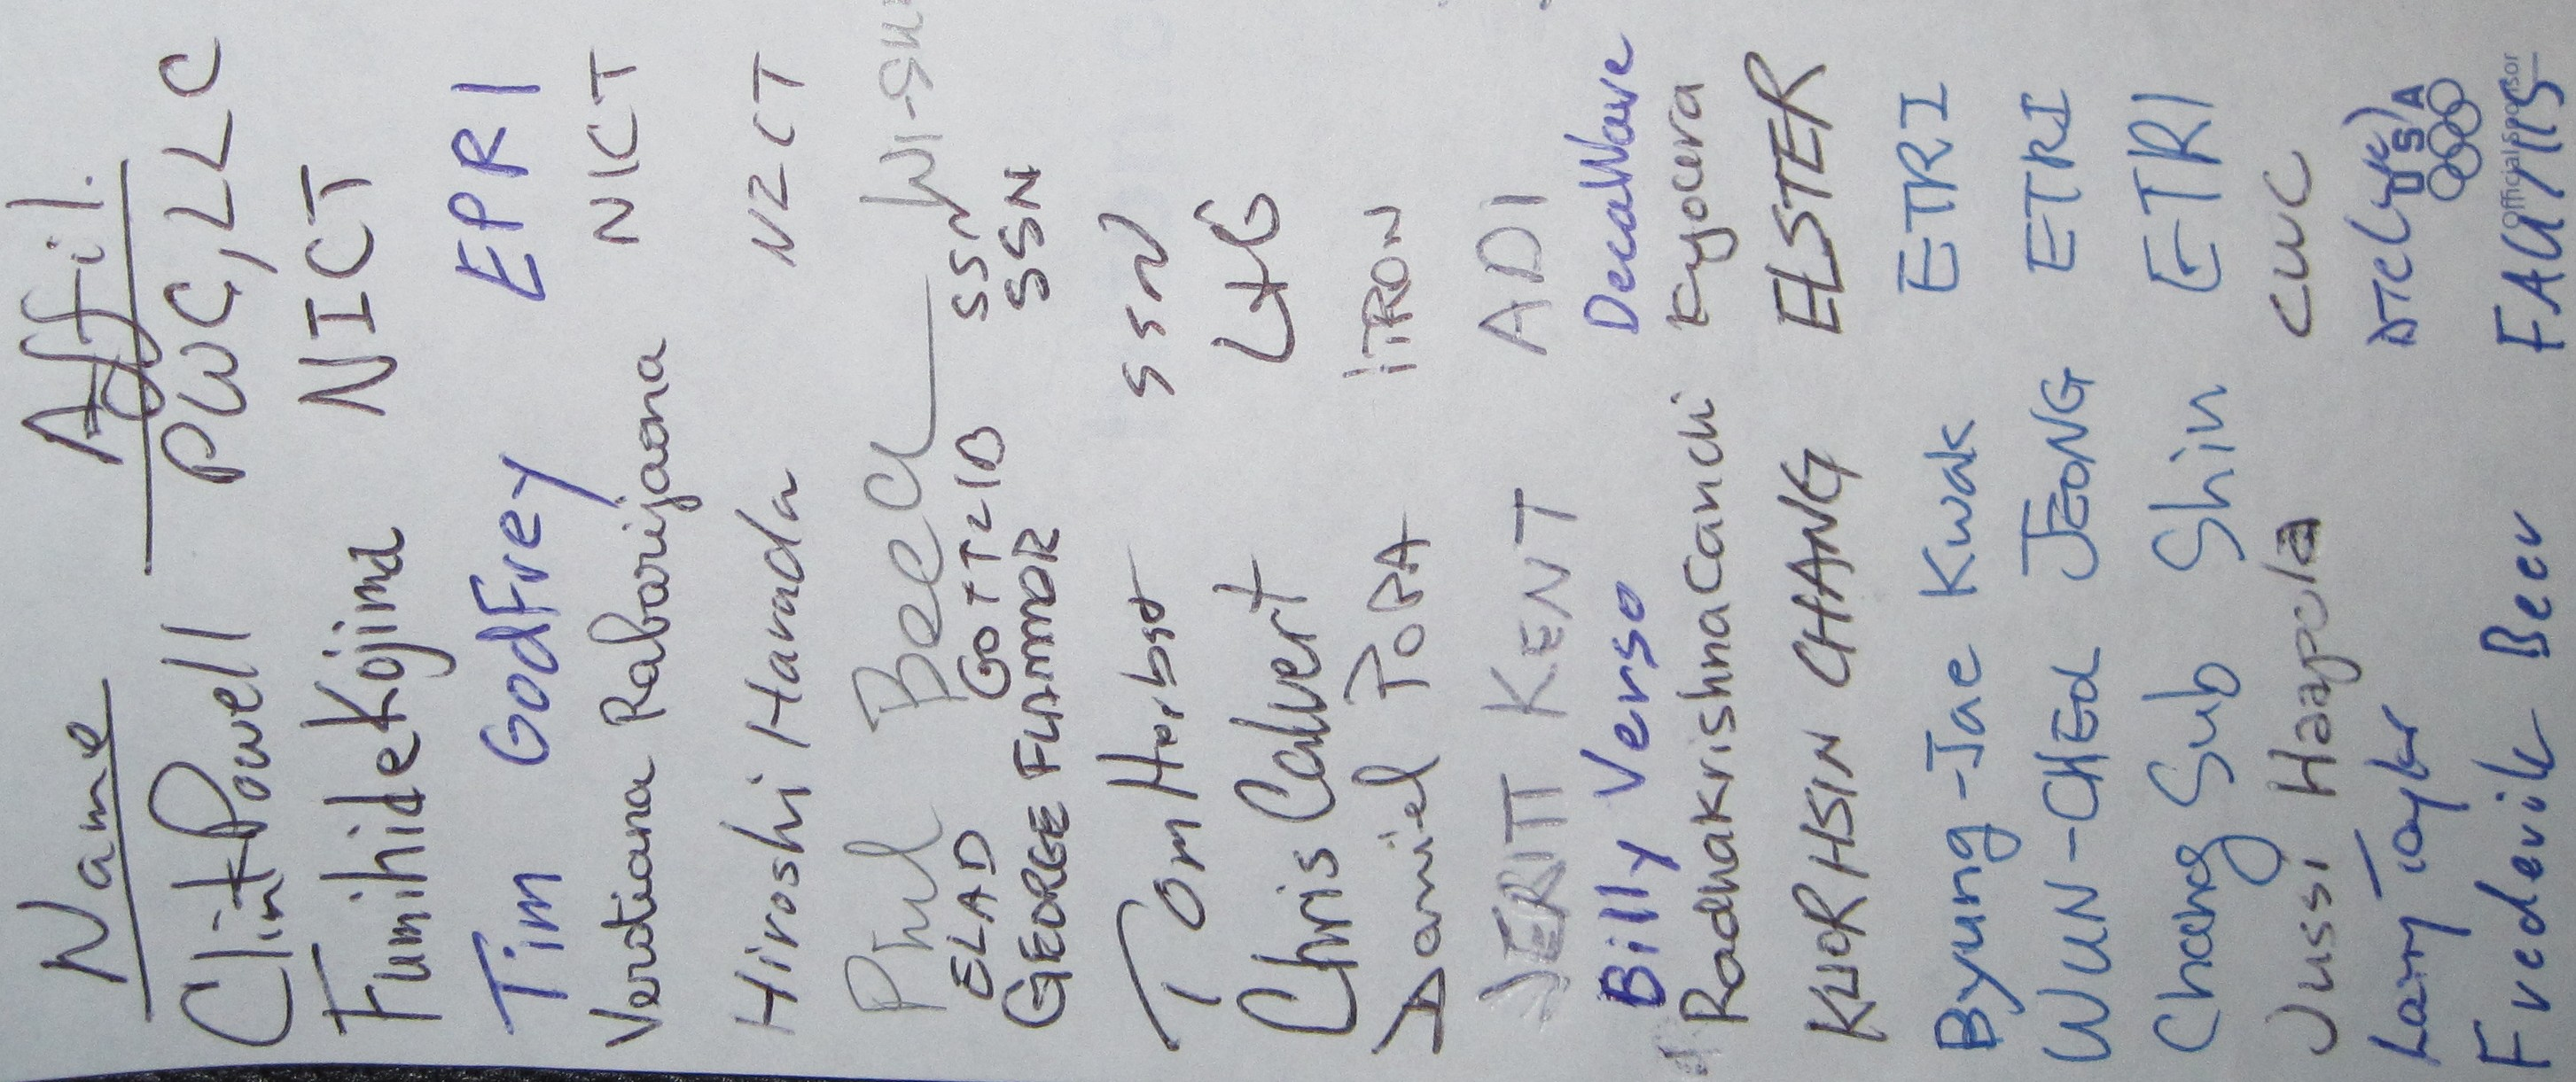 Name Affil.
Clint Powell PWC, LLC
Fumihide Kojima NICT
Tim Godfrey EPRI
Verotiana Rabarijaona NICT
Hiroshi Harada NICT
Phil Beecher Wi-SUN
ELAD GOTTLIB SSN
GEORGE FLAMMER SSN
Tom Herbst SSN
Chris Calvert L+G
Daniel POPA iTRON
KENT ADI
Billy Verso DecaWave
Radhakrishna Canchi Kyocera
KUOR HSIN CHANG ELSTER
Byung-Jae Kwak ETRI
WUN-CHEOL JEONG ETRI
Chang Sub Shin ETRI
Jussi Haapola CWC
Larry Taylor DTC (UK)
USA
Official sponsor
Frederik Beer FAU/IIS